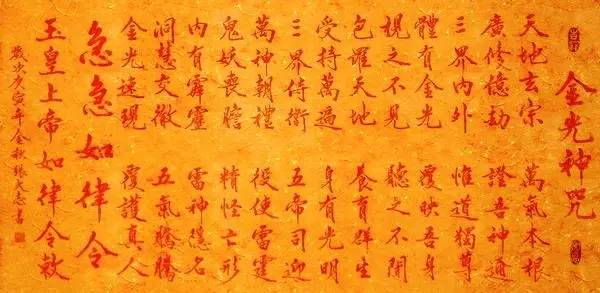 金光神咒
天地玄宗 萬氣本根
廣修億劫 證吾神通
三界內外 惟道獨尊
體有金光 覆映吾身
視之不見 聽之不聞
包羅天地 養育群生
受持萬遍 身有光明
三界侍衛 五帝司迎
萬神朝禮 役使雷霆
鬼妖喪膽 精怪亡形
內有霹靂 雷神隱名
洞慧交徹 五氣騰騰
金光速現 覆護真人
急急如律令
玉皇上帝如律令敕
歲次庚寅年金秋張志書